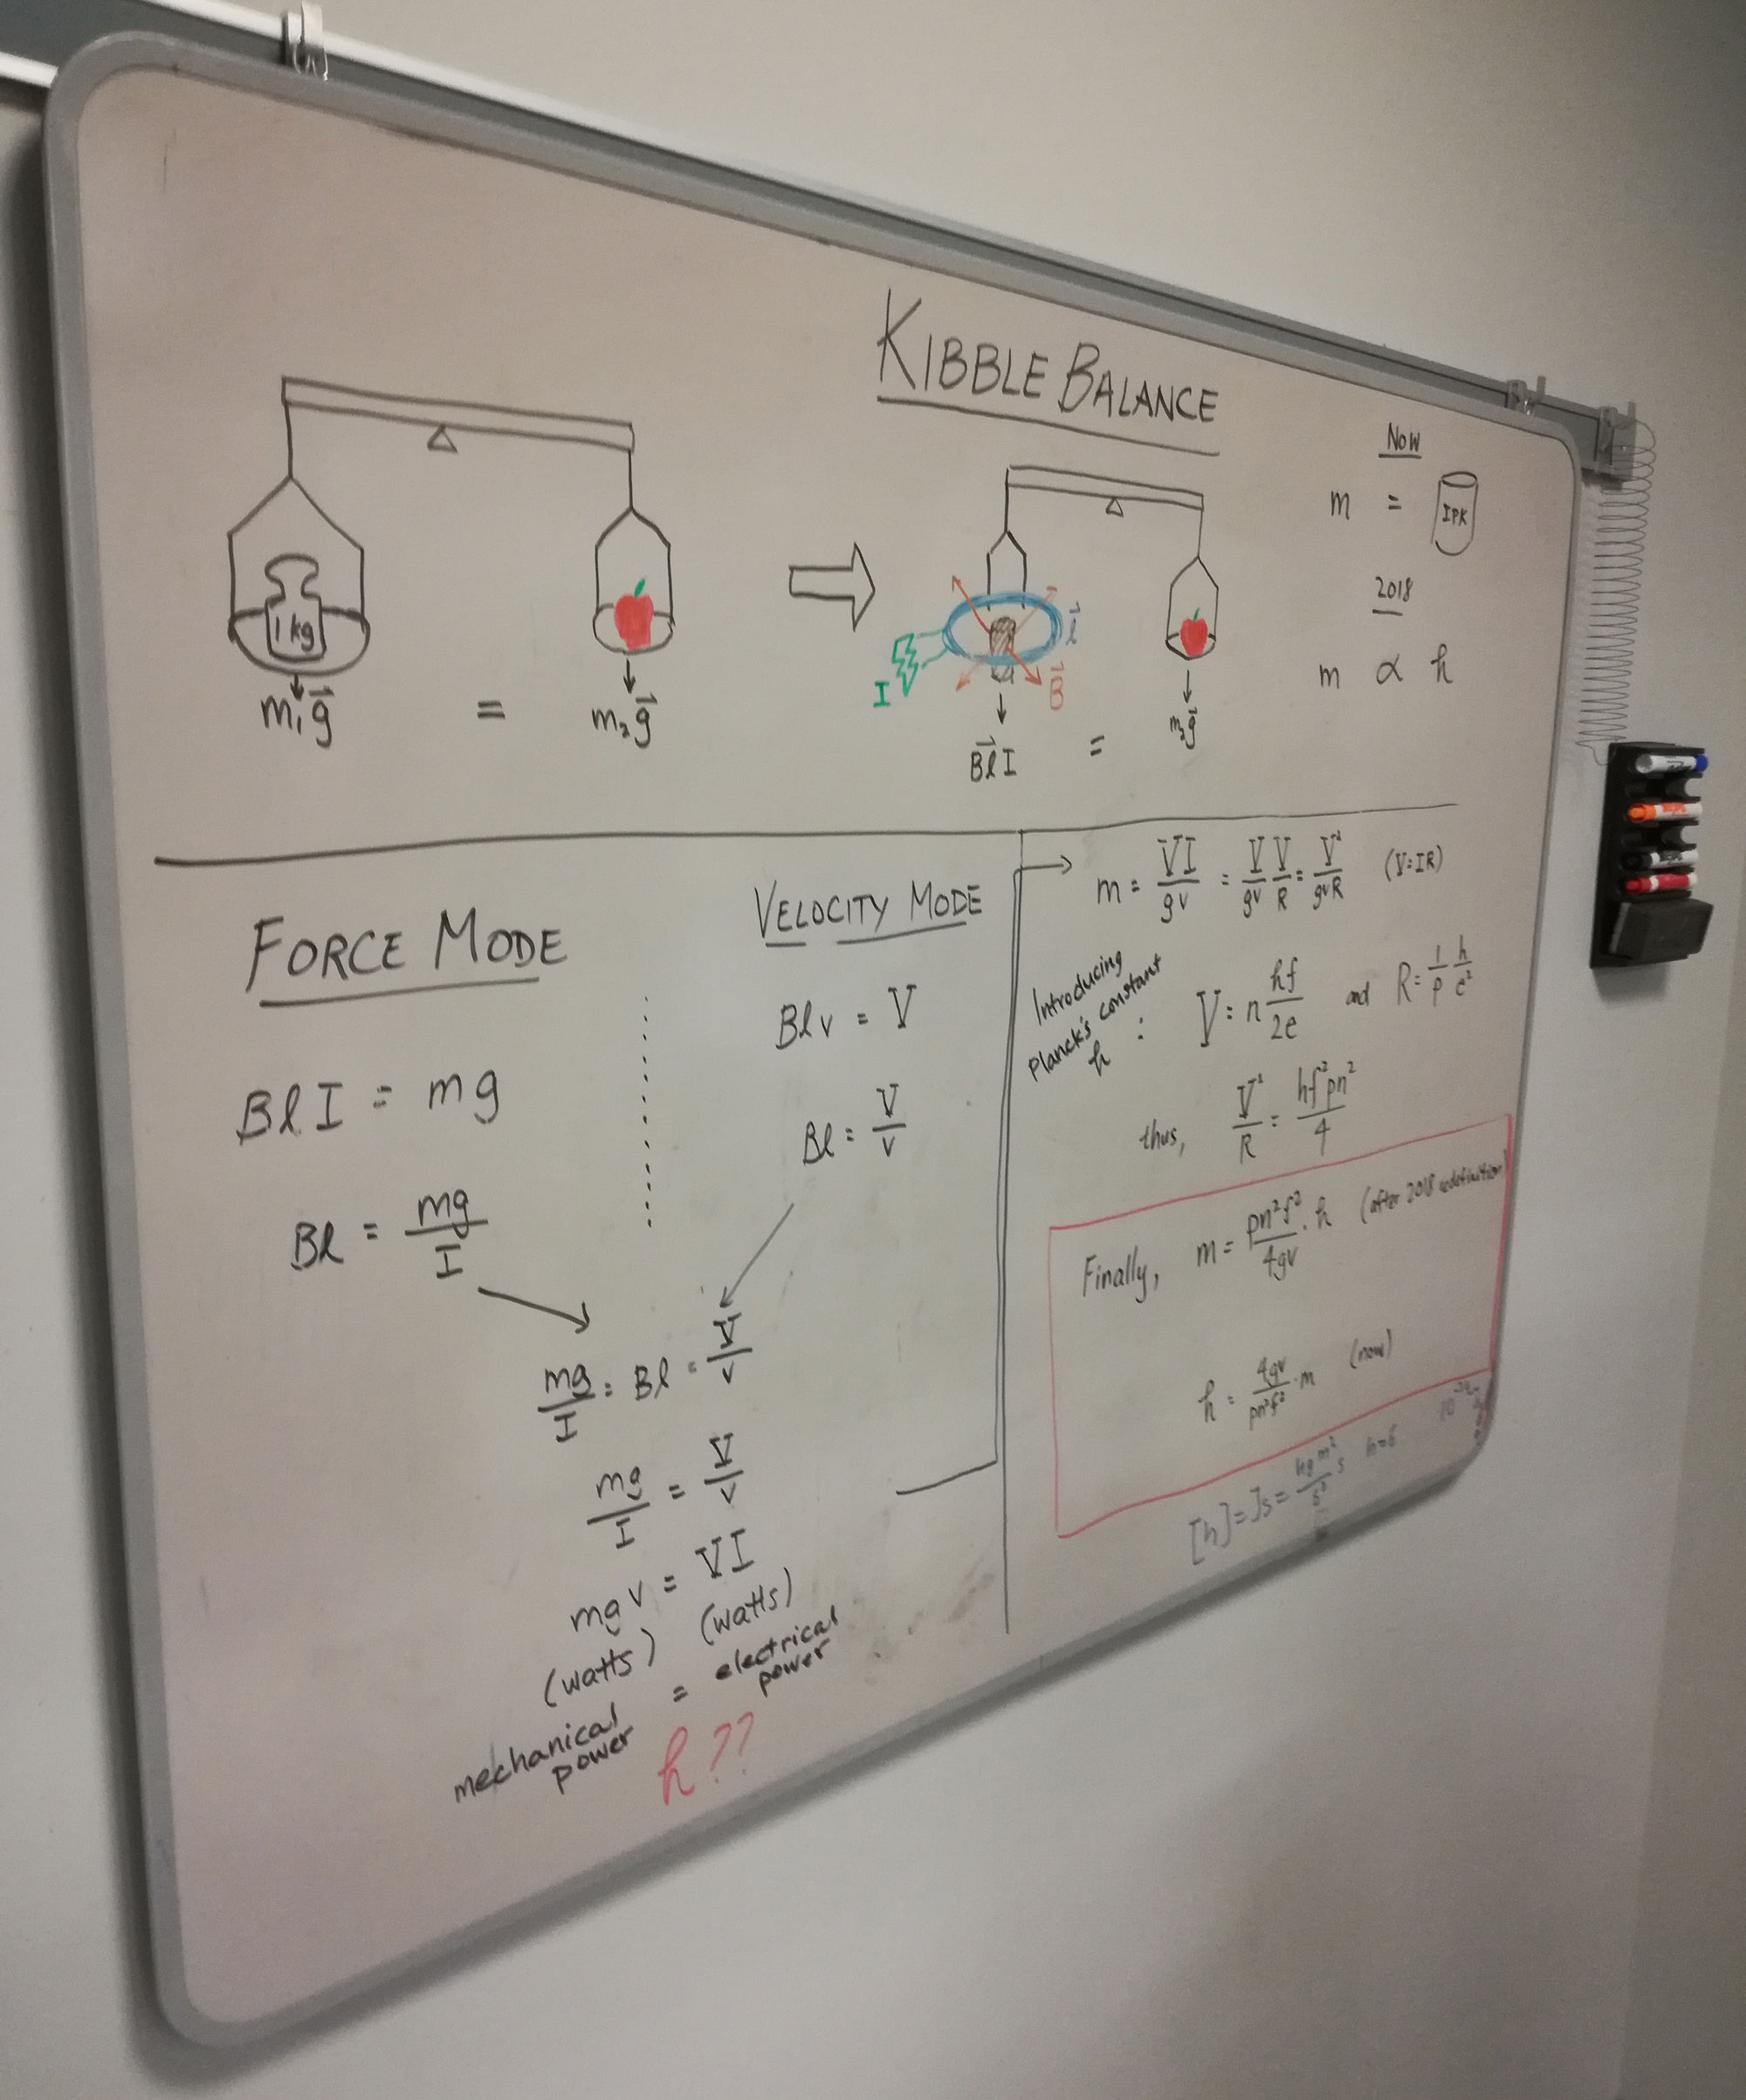 KIBBLE BALANCE
1 kg
m₁g⃗ = m₂g⃗
I
l⃗
B⃗
B⃗lI = m₂g⃗
Now
m = IPK
2018
m ∝ h
FORCE MODE
BlI = mg
Bl = mg/I
VELOCITY MODE
Blv = V
Bl = V/v
mg/I = Bl = V/v
mg/I = V/v
mgv = VI
(watts) (watts)
mechanical power = electrical power
h??
m = VI/gv = V/gv V/R = V²/gvR (V=IR)
Introducing
Planck's constant
h : V = n hf/2e and R = 1/p h/e²
thus, V²/R = hf²pn²/4
Finally, m = pn²f²/4gv · h (after 2018 redefinition)
h = 4gv/pn²f² · m (now)
[h] = Js = kg m²/s² s h=6